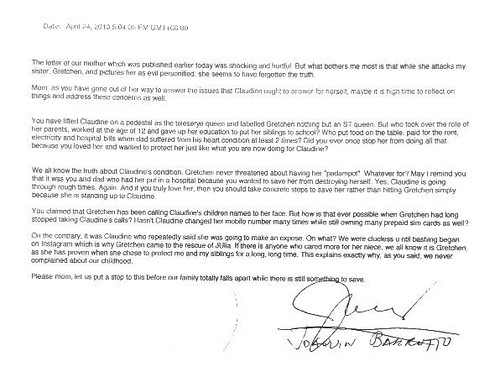 Date: April 24, 2013 5:04:06 PM GMT+08:00
The letter of our mother which was published earlier today was shocking and hurtful. But what bothers me most is that while she attacks my
sister, Gretchen, and pictures her as evil personified, she seems to have forgotten the truth.
Mom, as you have gone out of her way to answer the issues that Claudine ought to answer for herself, maybe it is high time to reflect on
things and address these concerns as well.
You have lifted Claudine on a pedestal as the teleserye queen and labelled Gretchen nothing but an ST queen. But who took over the role of
her parents, worked at the age of 12 and gave up her education to put her siblings to school? Who put food on the table, paid for the rent,
electricity and hospital bills when dad suffered from his heart condition at least 2 times? Did you ever once stop her from doing all that
because you loved her and wanted to protect her just like what you are now doing for Claudine?
We all know the truth about Claudine's condition. Gretchen never threatened about having her "padampot". Whatever for? May I remind you
that it was you and dad who had her put in a hospital because you wanted to save her from destroying herself. Yes, Claudine is going
through rough times. Again. And if you truly love her, then you should take concrete steps to save her rather than hitting Gretchen simply
because she is standing up to Claudine.
You claimed that Gretchen has been calling Claudine's children names to her face. But how is that ever possible when Gretchen had long
stopped taking Claudine's calls? Hasn't Claudine changed her mobile number many times while still owning many prepaid sim cards as well?
On the contrary, it was Claudine who repeatedly said she was going to make an expose. On what? We were clueless until bashing began
on Instagram which is why Gretchen came to the rescue of Julia. If there is anyone who cared more for her niece, we all know it is Gretchen,
as she has proven when she chose to protect me and my siblings for a long, long time. This explains exactly why, as you said, we never
complained about our childhood.
Please mom, let us put a stop to this before our family totally falls apart while there is still something to save.
JOAQUIN BARRETTO